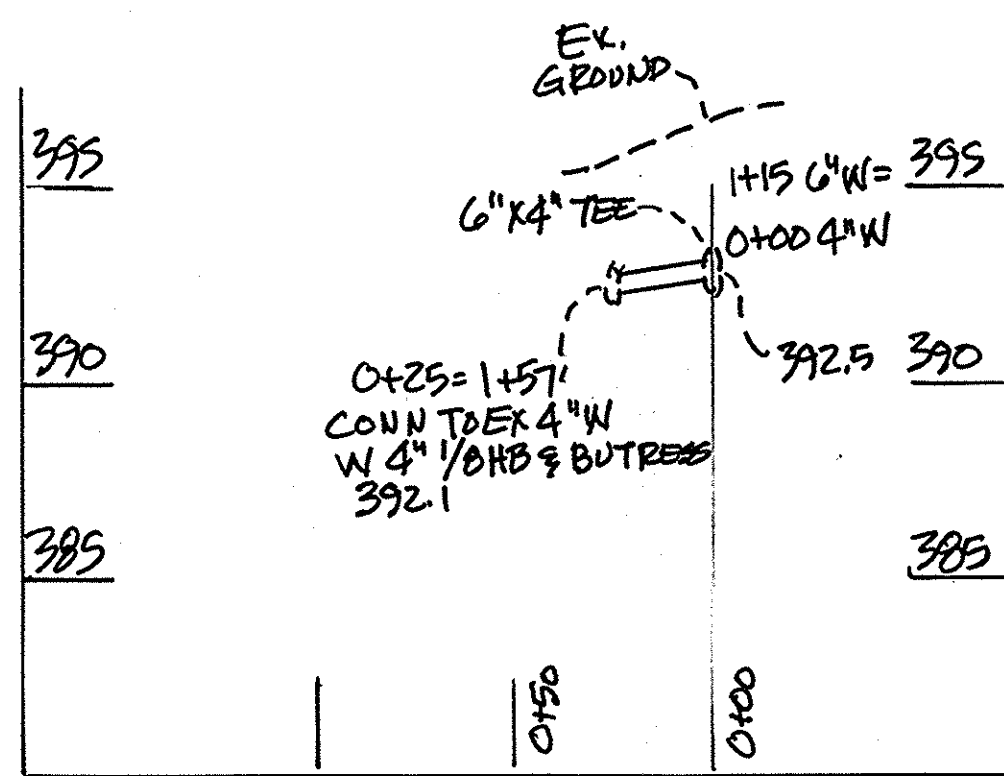 EX.
GROUND
395
1+15 6"W=
395
6"X4" TEE
0+00 4"W
390
392.5
390
0+25=1+57
CONN TO EX 4"W
W 4" 1/8HB & BUTRESS
392.1
385
385
0+50
0+00